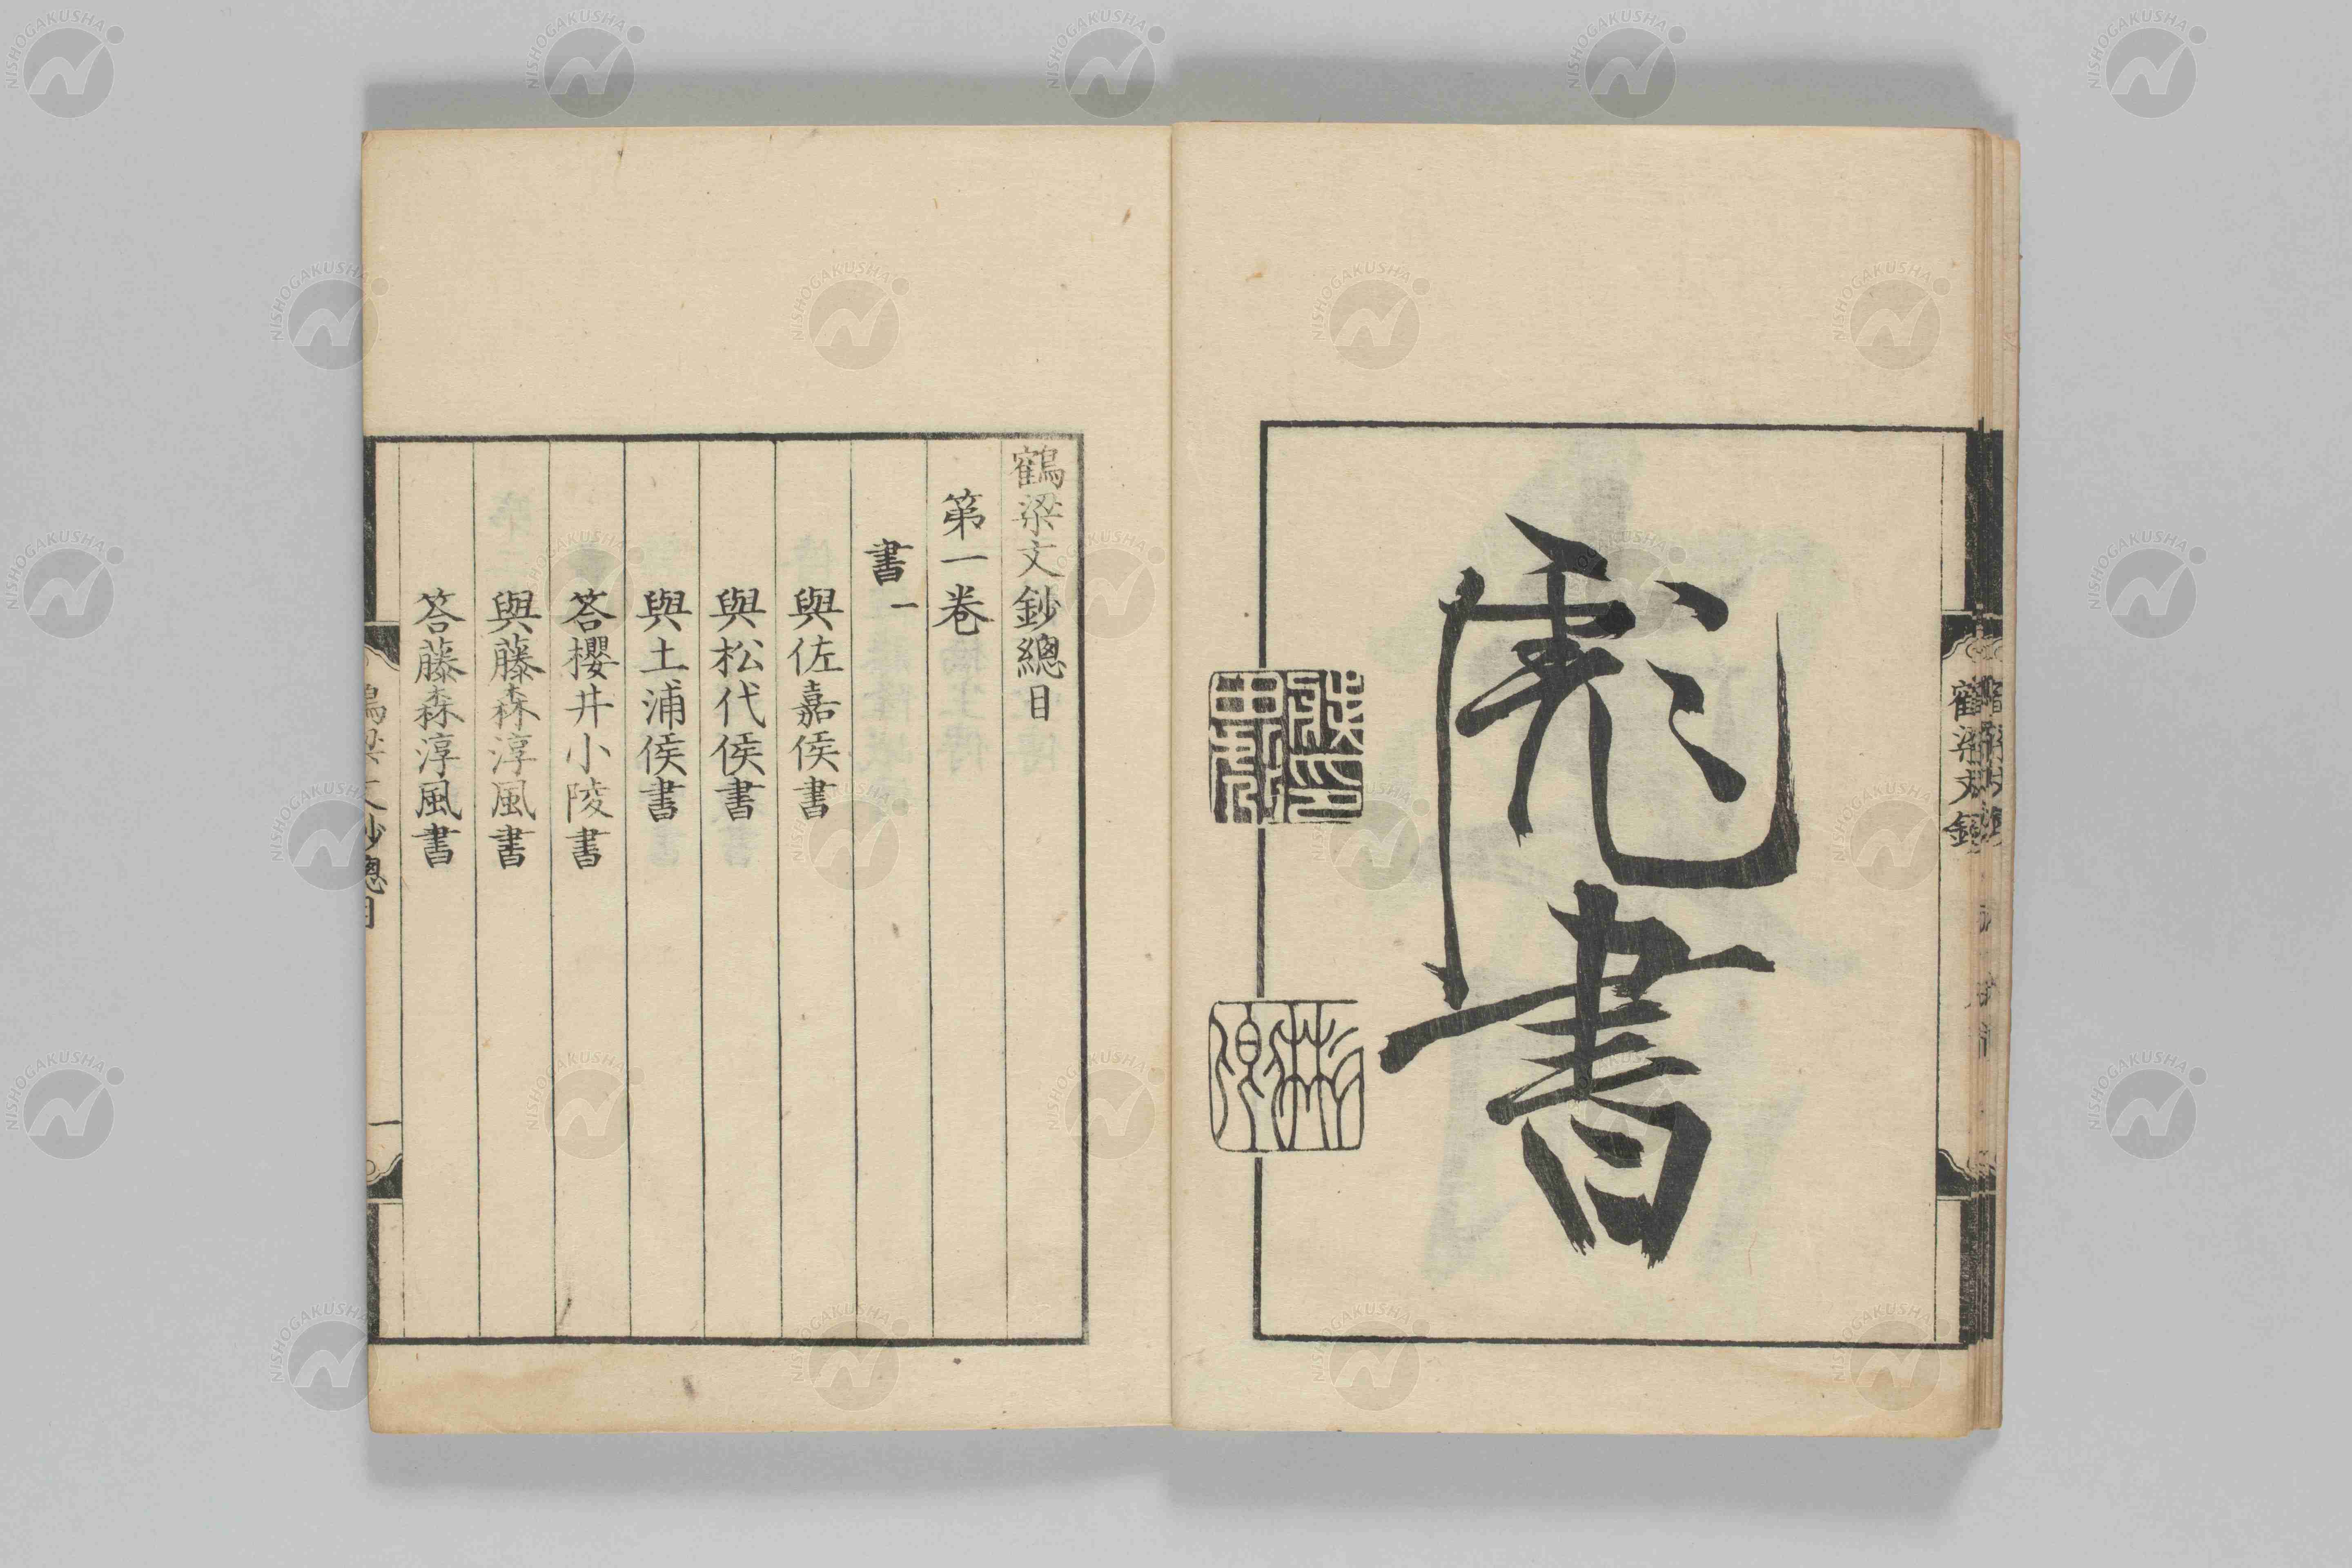 彪書
鶴梁文鈔
鶴梁文鈔總目
第一卷
書一
與佐嘉侯書
與松代侯書
與土浦侯書
答櫻井小陵書
與藤森淳風書
答藤森淳風書
鶴梁文鈔總目
一
NISHOGAKUSHA